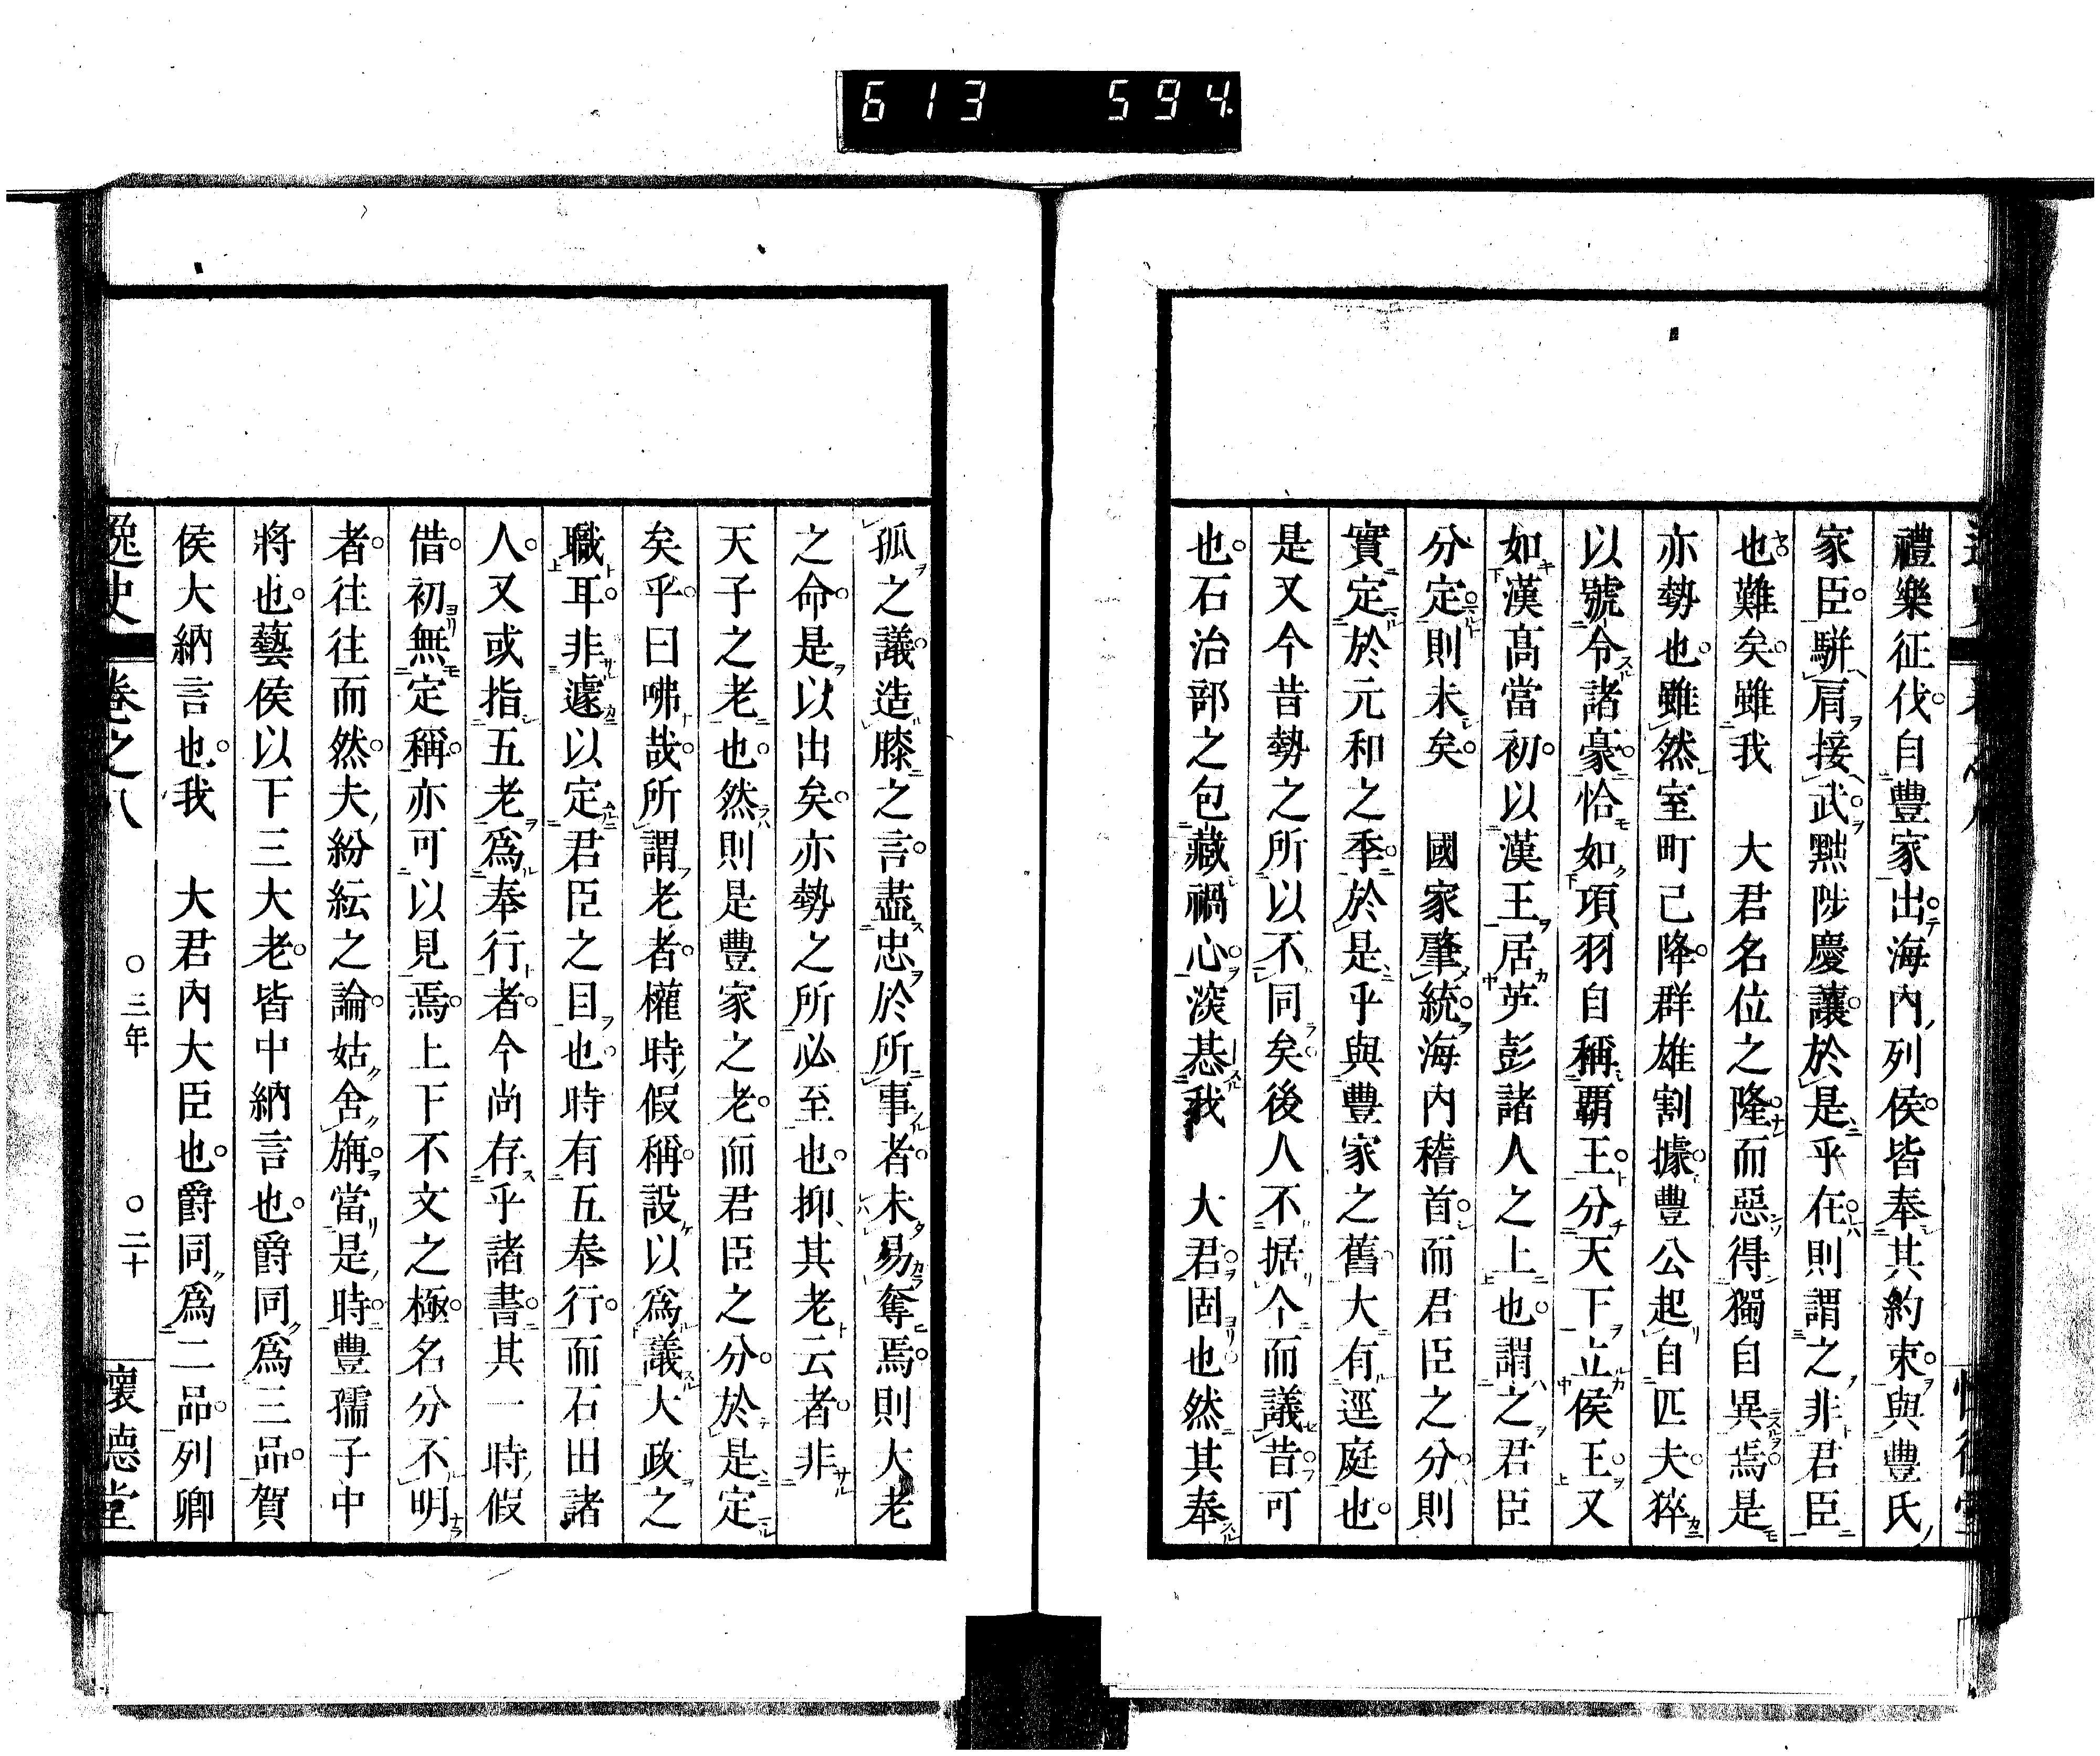 613 594
禮樂征伐自豐家出海內列侯皆奉其約束與豐氏
家臣駢肩接武黜陟慶讓於是乎在則謂之非君臣
也難矣雖我　大君名位之隆而惡得獨自異焉是
亦勢也雖然室町己降群雄割據豐公起自匹夫猝
以號令諸豪恰如項羽自稱覇王分天下立侯王又
如漢高當初以漢王居英彭諸人之上也謂之君臣
分定則未矣　國家肇統海內稽首而君臣之分則
實定於元和之季於是乎與豐家之舊大有逕庭也
是又今昔勢之所以不同矣後人不据个而議昔可
也石治部之包藏禍心深惎我　大君固也然其奉
孤之議造膝之言盡忠於所事者未易奪焉則大老
之命是以出矣亦勢之所必至也抑其老云者非
天子之老也然則是豐家之老而君臣之分於是定
矣乎曰咈哉所謂老者權時假稱設以爲議大政之
職耳非遽以定君臣之目也時有五奉行而石田諸
人又或指五老爲奉行者今尚存乎諸書其一時假
借初無定稱亦可以見焉上下不文之極名分不明
者往往而然夫紛紜之論姑舍旃當是時豐孺子中
將也藝侯以下三大老皆中納言也爵同爲三品賀
侯大納言也我　大君內大臣也爵同爲二品列卿
逸史 卷之八 ○三年 ○二十 懷德堂